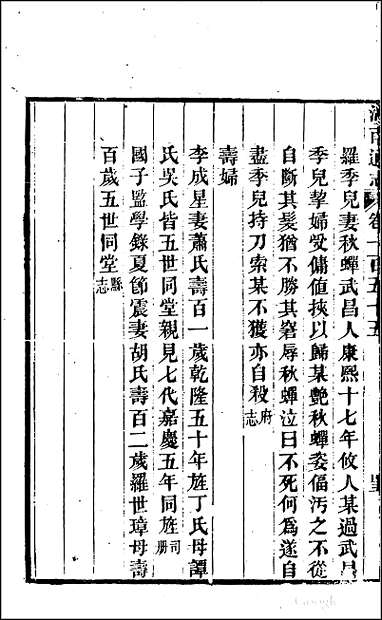 湖南通志 卷二百五十五
羅季兒妻秋蟬武昌人康熙十七年攸人某過武昌
季兒挈婦受傭值挾以歸某艷秋蟬姿偪汚之不從
自斷其髮猶不勝其窘辱秋蟬泣曰不死何爲遂自
盡季兒持刀索某不獲亦自殺府志
壽婦
李成星妻蕭氏壽百一歲乾隆五十年旌丁氏母譚
氏吳氏皆五世同堂親見七代嘉慶五年同旌司冊
國子監學錄夏節震妻胡氏壽百二歲羅世璋母壽
百歲五世同堂縣志
Google